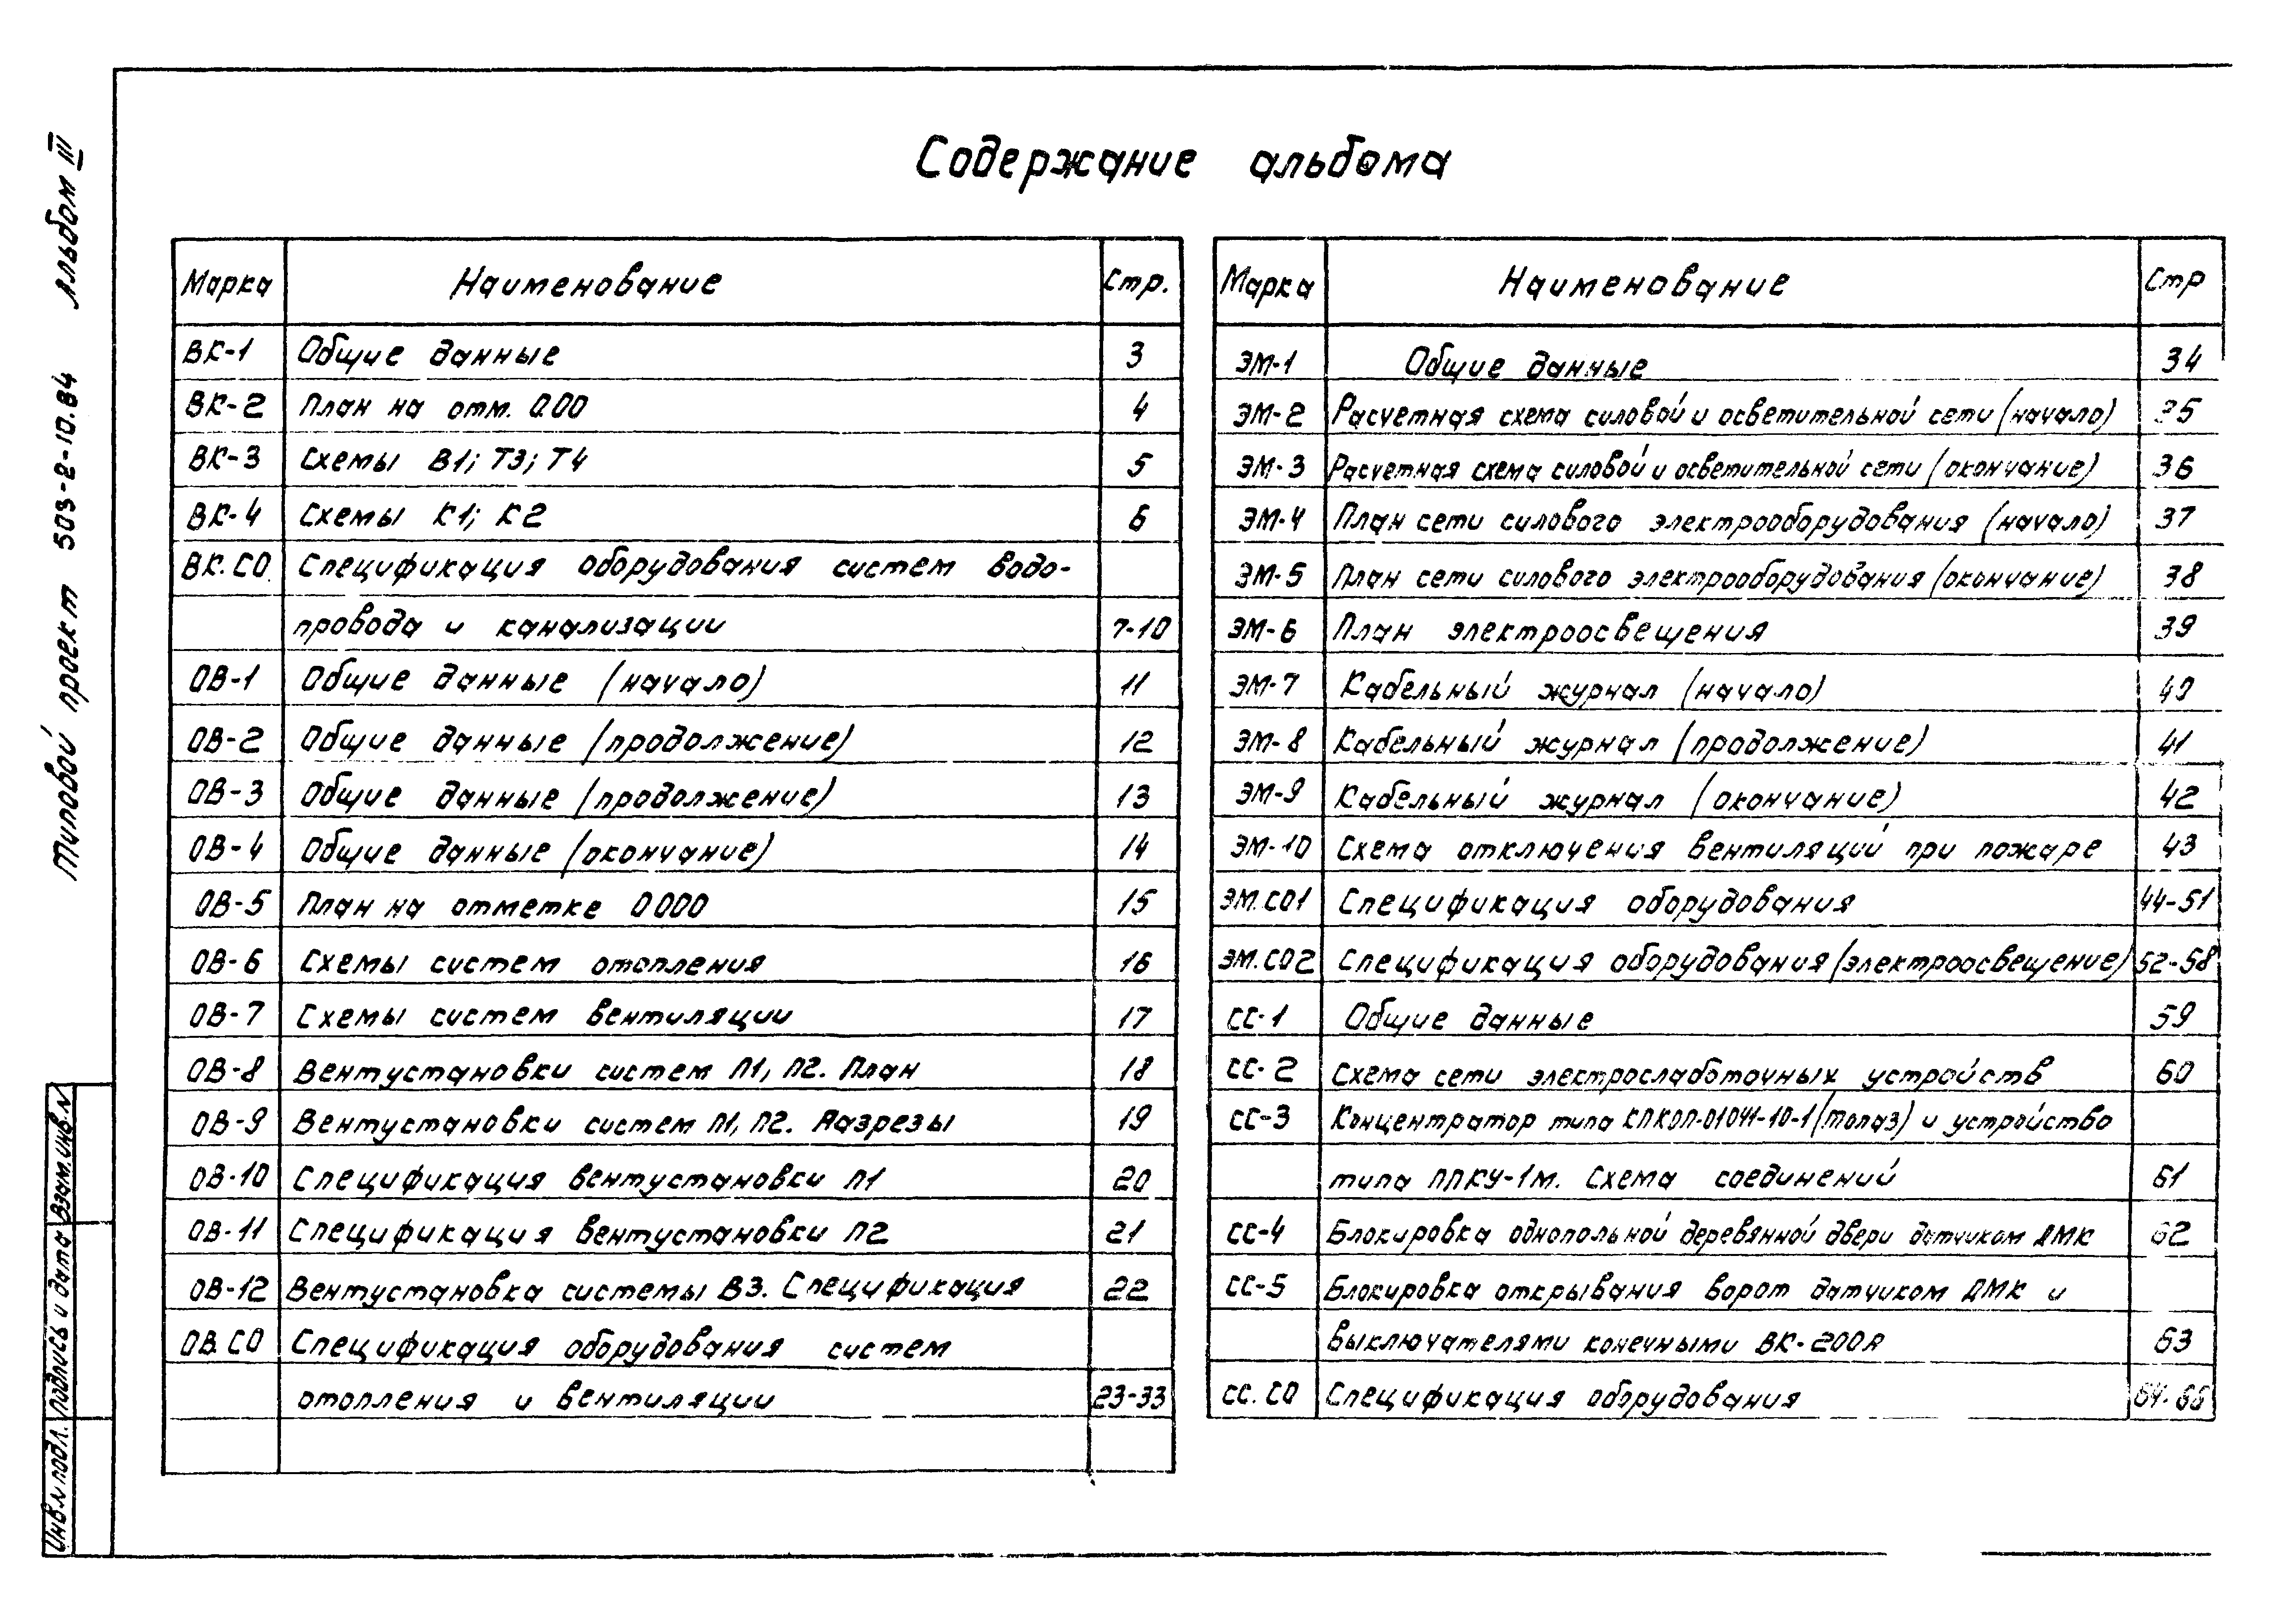 Содержание альбома
Марка Наименование Стр.
ВК-1 Общие данные 3
ВК-2 План на отм. 0.00 4
ВК-3 Схемы В1; Т3; Т4 5
ВК-4 Схемы К1; К2 6
ВК.СО. Спецификация оборудования систем водо-
провода и канализации 7-10
ОВ-1 Общие данные (начало) 11
ОВ-2 Общие данные (продолжение) 12
ОВ-3 Общие данные (продолжение) 13
ОВ-4 Общие данные (окончание) 14
ОВ-5 План на отметке 0000 15
ОВ-6 Схемы систем отопления 16
ОВ-7 Схемы систем вентиляции 17
ОВ-8 Вентустановки систем П1, П2. План 18
ОВ-9 Вентустановки систем П1, П2. Разрезы 19
ОВ-10 Спецификация вентустановки П1 20
ОВ-11 Спецификация вентустановки П2 21
ОВ-12 Вентустановка системы В3. Спецификация 22
ОВ.СО Спецификация оборудования систем
отопления и вентиляции 23-33
Марка Наименование Стр
ЭМ-1 Общие данные 34
ЭМ-2 Расчетная схема силовой и осветительной сети (начало) 35
ЭМ-3 Расчетная схема силовой и осветительной сети (окончание) 36
ЭМ-4 План сети силового электрооборудования (начало) 37
ЭМ-5 План сети силового электрооборудования (окончание) 38
ЭМ-6 План электроосвещения 39
ЭМ-7 Кабельный журнал (начало) 40
ЭМ-8 Кабельный журнал (продолжение) 41
ЭМ-9 Кабельный журнал (окончание) 42
ЭМ-10 Схема отключения вентиляций при пожаре 43
ЭМ.СО1 Спецификация оборудования 44-51
ЭМ.СО2 Спецификация оборудования (электроосвещение) 52-58
СС-1 Общие данные 59
СС-2 Схема сети электрослаботочных устройств 60
СС-3 Концентратор типа КПКОП-01041-10-1 (Топаз) и устройство
типа ППКУ-1М. Схема соединений 61
СС-4 Блокировка однопольной деревянной двери датчиком ДМК 62
СС-5 Блокировка открывания ворот датчиком ДМК и
выключателями конечными ВК-200А 63
СС.СО Спецификация оборудования 64-66
Типовой проект 503-2-10.84 Альбом III
Инв.N подл. Подпись и дата Взам.инв.N